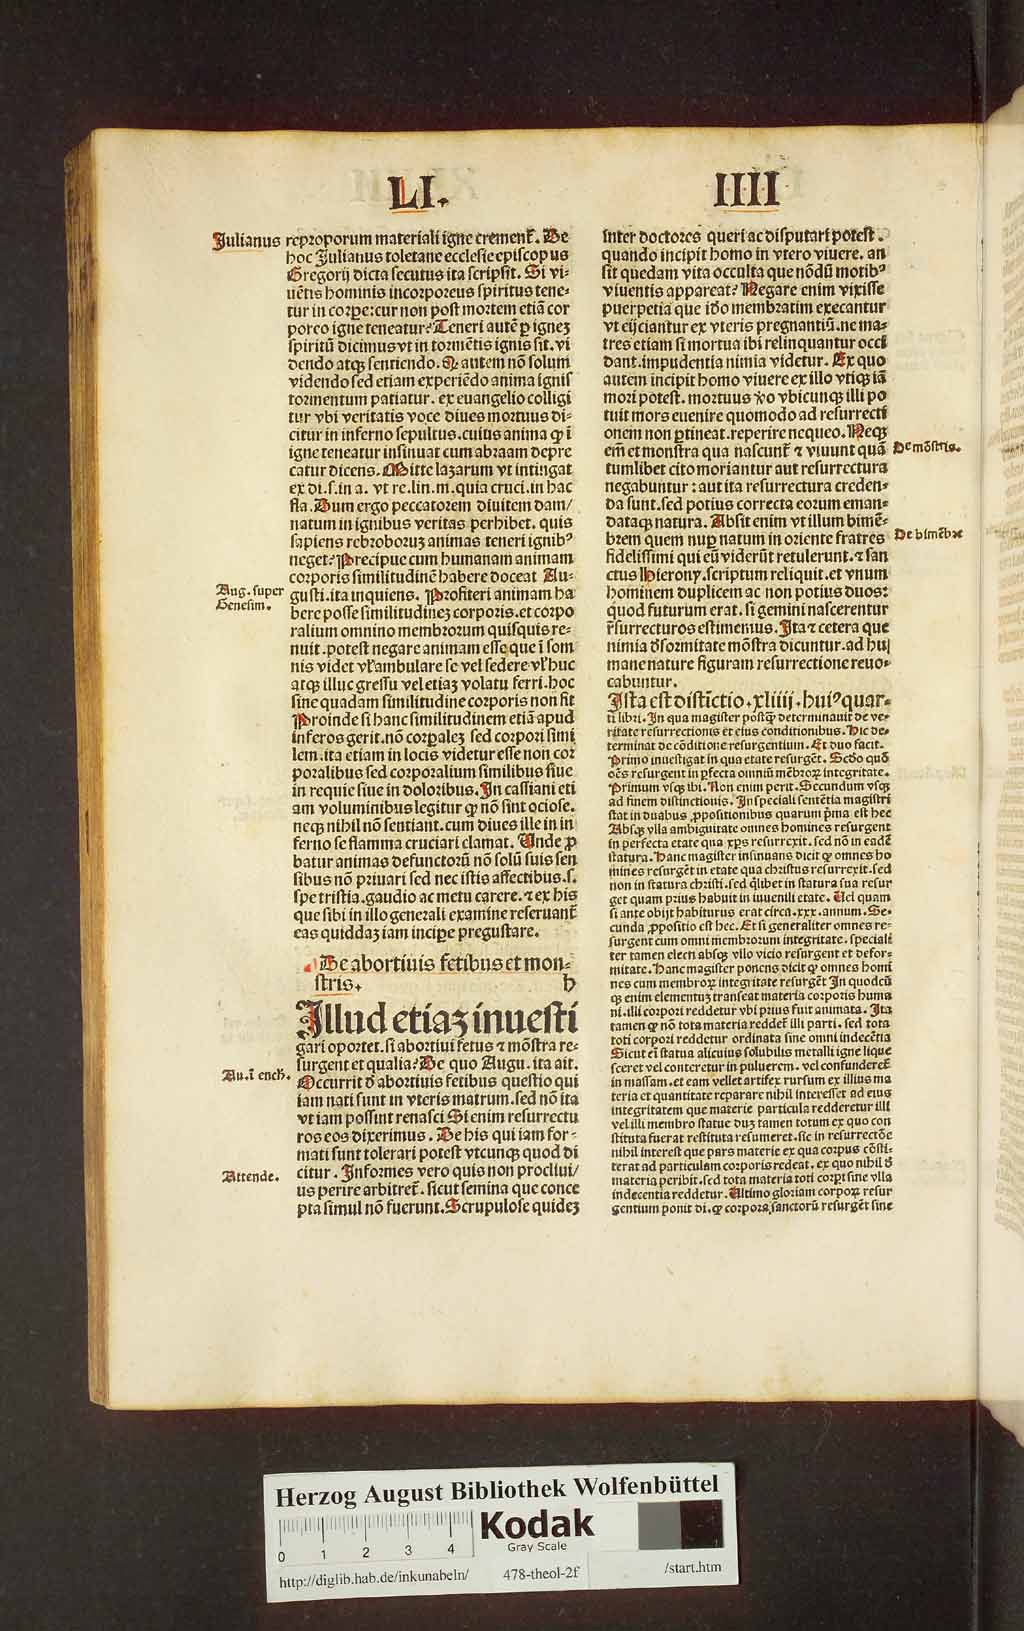 LI.
IIII
Julianus
reproporum materiali igne cremenť. De
hoc Julianus toletane ecclesie episcopus
Gregorij dicta secutus ita scripsit. Si vi-
uētis hominis incorporeus spiritus tene-
tur in corpe: cur non post mortem etiā cor
poreo igne teneatur? Teneri autē ꝑ ignez
spiritū dicimus vt in tormētis ignis sit. vi
dendo atqꝫ sentiendo. Ꝙ autem nō solum
videndo sed etiam experiēdo anima ignis
tormentum patiatur. ex euangelio colligi
tur vbi veritatis voce diues mortuus di-
citur in inferno sepultus. cuius anima ꝙ ī
igne teneatur insinuat cum abraam depre
catur dicens. Mitte lazarum vt intingat
ex di. s. in a. vt re. lin. m. quia cruci. in hac
fla. Dum ergo peccatorem diuitem dam/
natum in ignibus veritas perhibet. quis
sapiens rebroboruz animas teneri ignibꝰ
neget? Precipue cum humanam animam
corporis similitudinē habere doceat Au-
Aug. super
Genesim.
gusti. ita inquiens. Profiteri animam ha
bere posse similitudinez corporis. et corpo
ralium omnino membrorum quisquis re-
nuit. potest negare animam esse que ī som
nis videt vł ambulare se vel sedere vł huc
atqꝫ illuc gressu vel etiaz volatu ferri. hoc
sine quadam similitudine corporis non fit
Proinde si hanc similitudinem etiā apud
inferos gerit. nō corꝑalez sed corpori simi
lem. ita etiam in locis videtur esse non cor
poralibus sed corporalium similibus siue
in requie siue in doloribus. In cassiani eti
am voluminibus legitur ꝙ nō sint ociose.
neqꝫ nihil nō sentiant. cum diues ille in in
ferno se flamma cruciari clamat. Unde ꝓ
batur animas defunctorū nō solū suis sen
sibus nō priuari sed nec istis affectibus. s.
spe tristia. gaudio ac metu carere. ⁊ ex his
que sibi in illo generali examine reseruanť
eas quiddaz iam incipe pregustare.
De abortiuis fetibus et mon-
stris. b
Illud etiaz inuesti
gari oportet. si abortiui fetus ⁊ mōstra re-
surgent et qualia? De quo Augu. ita ait.
Au. ī ench.
Occurrit ď abortiuis fetibus questio qui
iam nati sunt in vteris matrum. sed nō ita
vt iam possint renasci Si enim resurrectu
ros eos dixerimus. De his qui iam for-
mati sunt tolerari potest vtcunqꝫ quod di
Attende.
citur. Informes vero quis non procliui/
us perire arbitreť. sicut semina que conce
pta simul nō fuerunt. Scrupulose quidez
inter doctores queri ac disputari potest.
quando incipit homo in vtero viuere. an
sit quedam vita occulta que nōdū motibꝰ
viuentis appareat? Negare enim vixisse
puerperia que iďo membratim execantur
vt eijciantur ex vteris pregnantiū. ne ma-
tres etiam si mortua ibi relinquantur occi
dant. impudentia nimia videtur. Ex quo
autem incipit homo viuere ex illo vtiqꝫ iā
mori potest. mortuus v̊o vbicunqꝫ illi po
tuit mors euenire quomodo ad resurrecti
onem non ꝑtineat. reperire nequeo. Neqꝫ
em̄ et monstra qua nascunť ⁊ viuunt quā
De mōstris.
tumlibet cito moriantur aut resurrectura
negabuntur: aut ita resurrectura creden-
da sunt. sed potius correcta eorum eman-
dataqꝫ natura. Absit enim vt illum bimē-
brem quem nuꝑ natum in oriente fratres
De bimēbre
fidelissimi qui eū viderūt retulerunt. ⁊ san
ctus Hierony. scriptum reliquit. et vnum
hominem duplicem ac non potius duos:
quod futurum erat. si gemini nascerentur
r̄surrecturos estimemus. Ita ⁊ cetera que
nimia ďformitate mōstra dicuntur. ad hu
mane nature figuram resurrectione reuo-
cabuntur.
Ista est distīctio .xliiii. huiꝰ quar-
ti libri. In qua magister postqꝫ determinauit de ve-
ritate resurrectionis et eius conditionibus. Hic de-
terminat de cōditione resurgentium. Et duo facit.
Primo inuestigat in qua etate resurgēt. Scďo quō
oēs resurgent in ꝑfecta omniū mēbroꝝ integritate.
Primum vsqꝫ ibi. Non enim perit. Secundum vsqꝫ
ad finem distinctionis. In speciali sententia magistri
stat in duabus ꝓpositionibus quarum pͥma est hec
Absqꝫ vlla ambiguitate omnes homines resurgent
in perfecta etate qua xp̄s resurrexit. sed nō in eadē
statura. Hanc magister insinuans dicit ꝙ omnes ho
mines resurgēt in etate qua christus resurrexit. sed
non in statura christi. sed qͥlibet in statura sua resur
get quam prius habuit in iuuenili etate. Uel quam
si ante obijt habiturus erat circa .xxx. annum. Se-
cunda ꝓpositio est hec. Et si generaliter omnes re-
surgent cum omni membrorum integritate. speciali
ter tamen electi absqꝫ vllo vicio resurgent et defor-
mitate. Hanc magister ponens dicit ꝙ omnes homi
nes cum membroꝝ integritate resurgēt In quodcū
qꝫ enim elementuz transeat materia corporis huma
ni. illi corpori reddetur vbi prius fuit animata. Ita
tamen ꝙ nō tota materia reddeť illi parti. sed tota
toti corpori reddetur ordinata sine omni indecētia
Sicut em̄ statua alicuius solubilis metalli igne lique
sceret vel conteretur in puluerem. vel confundereť
in massam. et eam vellet artifex rursum ex illius ma
teria et quantitate reparare nihil interesset ad eius
integritatem que materie particula redderetur illi
vel illi membro statue duz tamen totum ex quo con
stituta fuerat restituta resumeret. sic in resurrectōe
nihil interest que pars materie ex qua corpus cōsti-
terat ad particulam corporis redeat. ex quo nihil ď
materia peribit. sed tota materia toti corꝑi sine vlla
indecentia reddetur. Ultimo gloriam corpoꝝ resur
gentium ponit di. ꝙ corpora sanctorū resurgēt sine
Herzog August Bibliothek Wolfenbüttel
0 1 2 3 4
Kodak
Gray Scale
http://diglib.hab.de/inkunabeln/
478-theol-2f
/start.htm